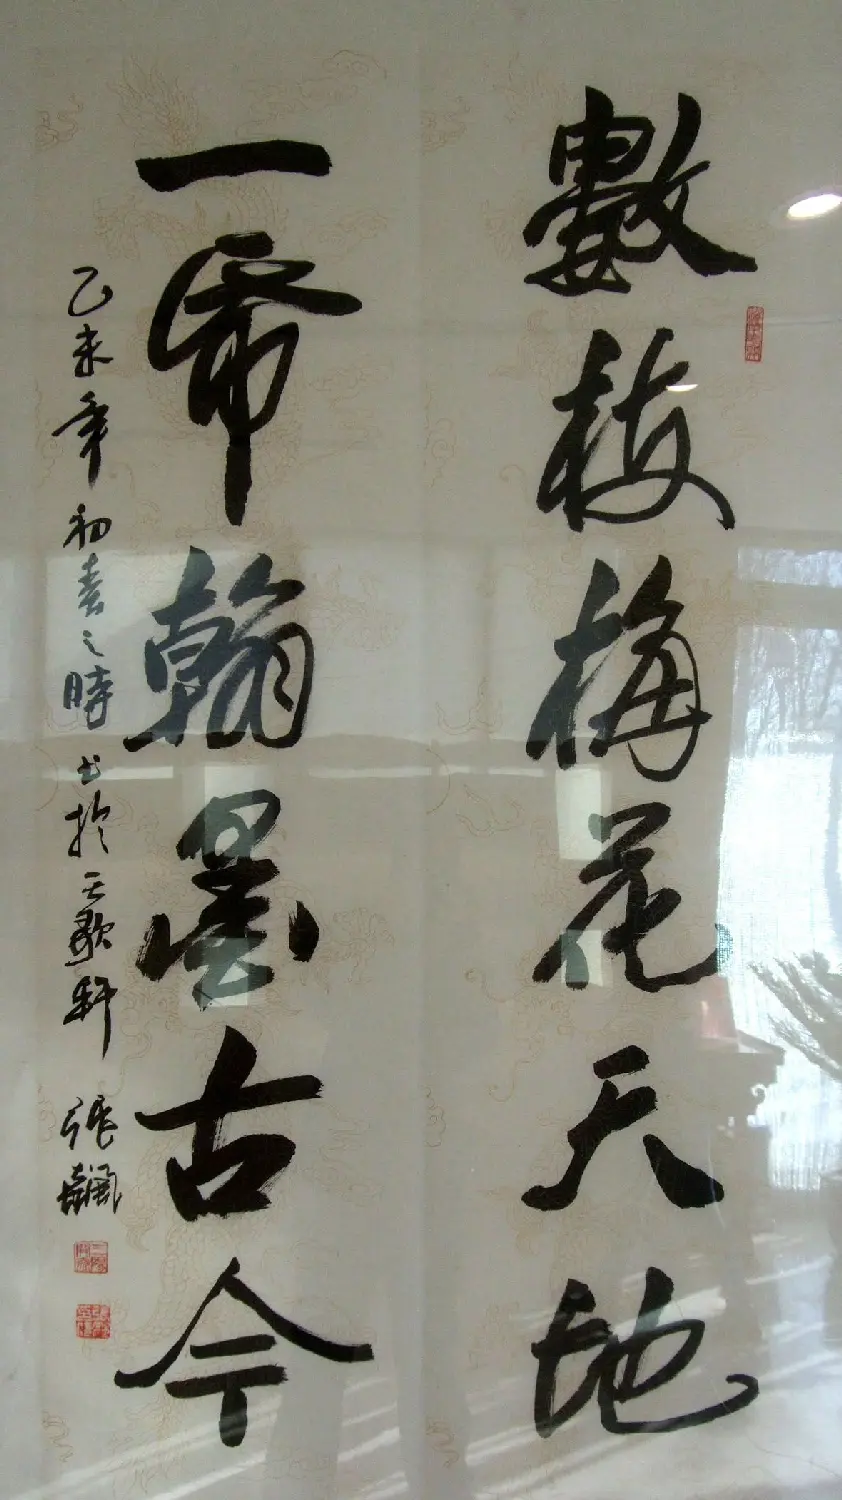 數枝梅花天地
一席翰墨古今
乙未年初春之時书於天歌軒
張飆